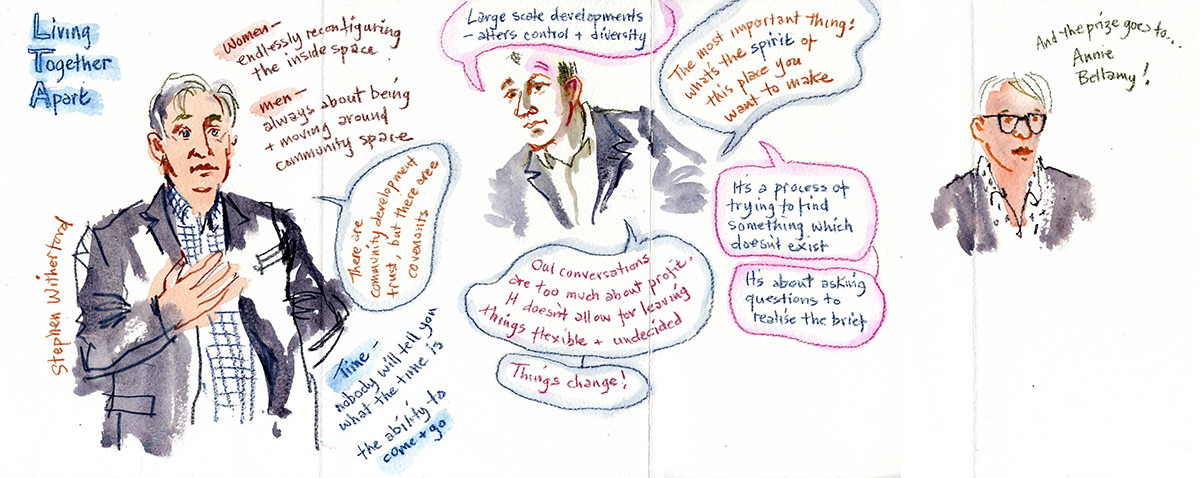 Living
Together
Apart
Women -
endlessly reconfiguring
the inside space
men -
always about being
+ moving around
community space
Stephen Witherford
There are
community development
trust, but there aree
covenants
Time -
nobody will tell you
what the time is
the ability to
come + go
Large scale developments
- alters control + diversity
The most important thing:
what's the spirit of
this place you
want to make
Our conversations
are too much about profit.
It doesn't allow for leaving
things flexible + undecided
Things change!
It's a process of
trying to find
something which
doesn't exist
It's about asking
questions to
realise the brief
And the prize goes to...
Annie
Bellamy!